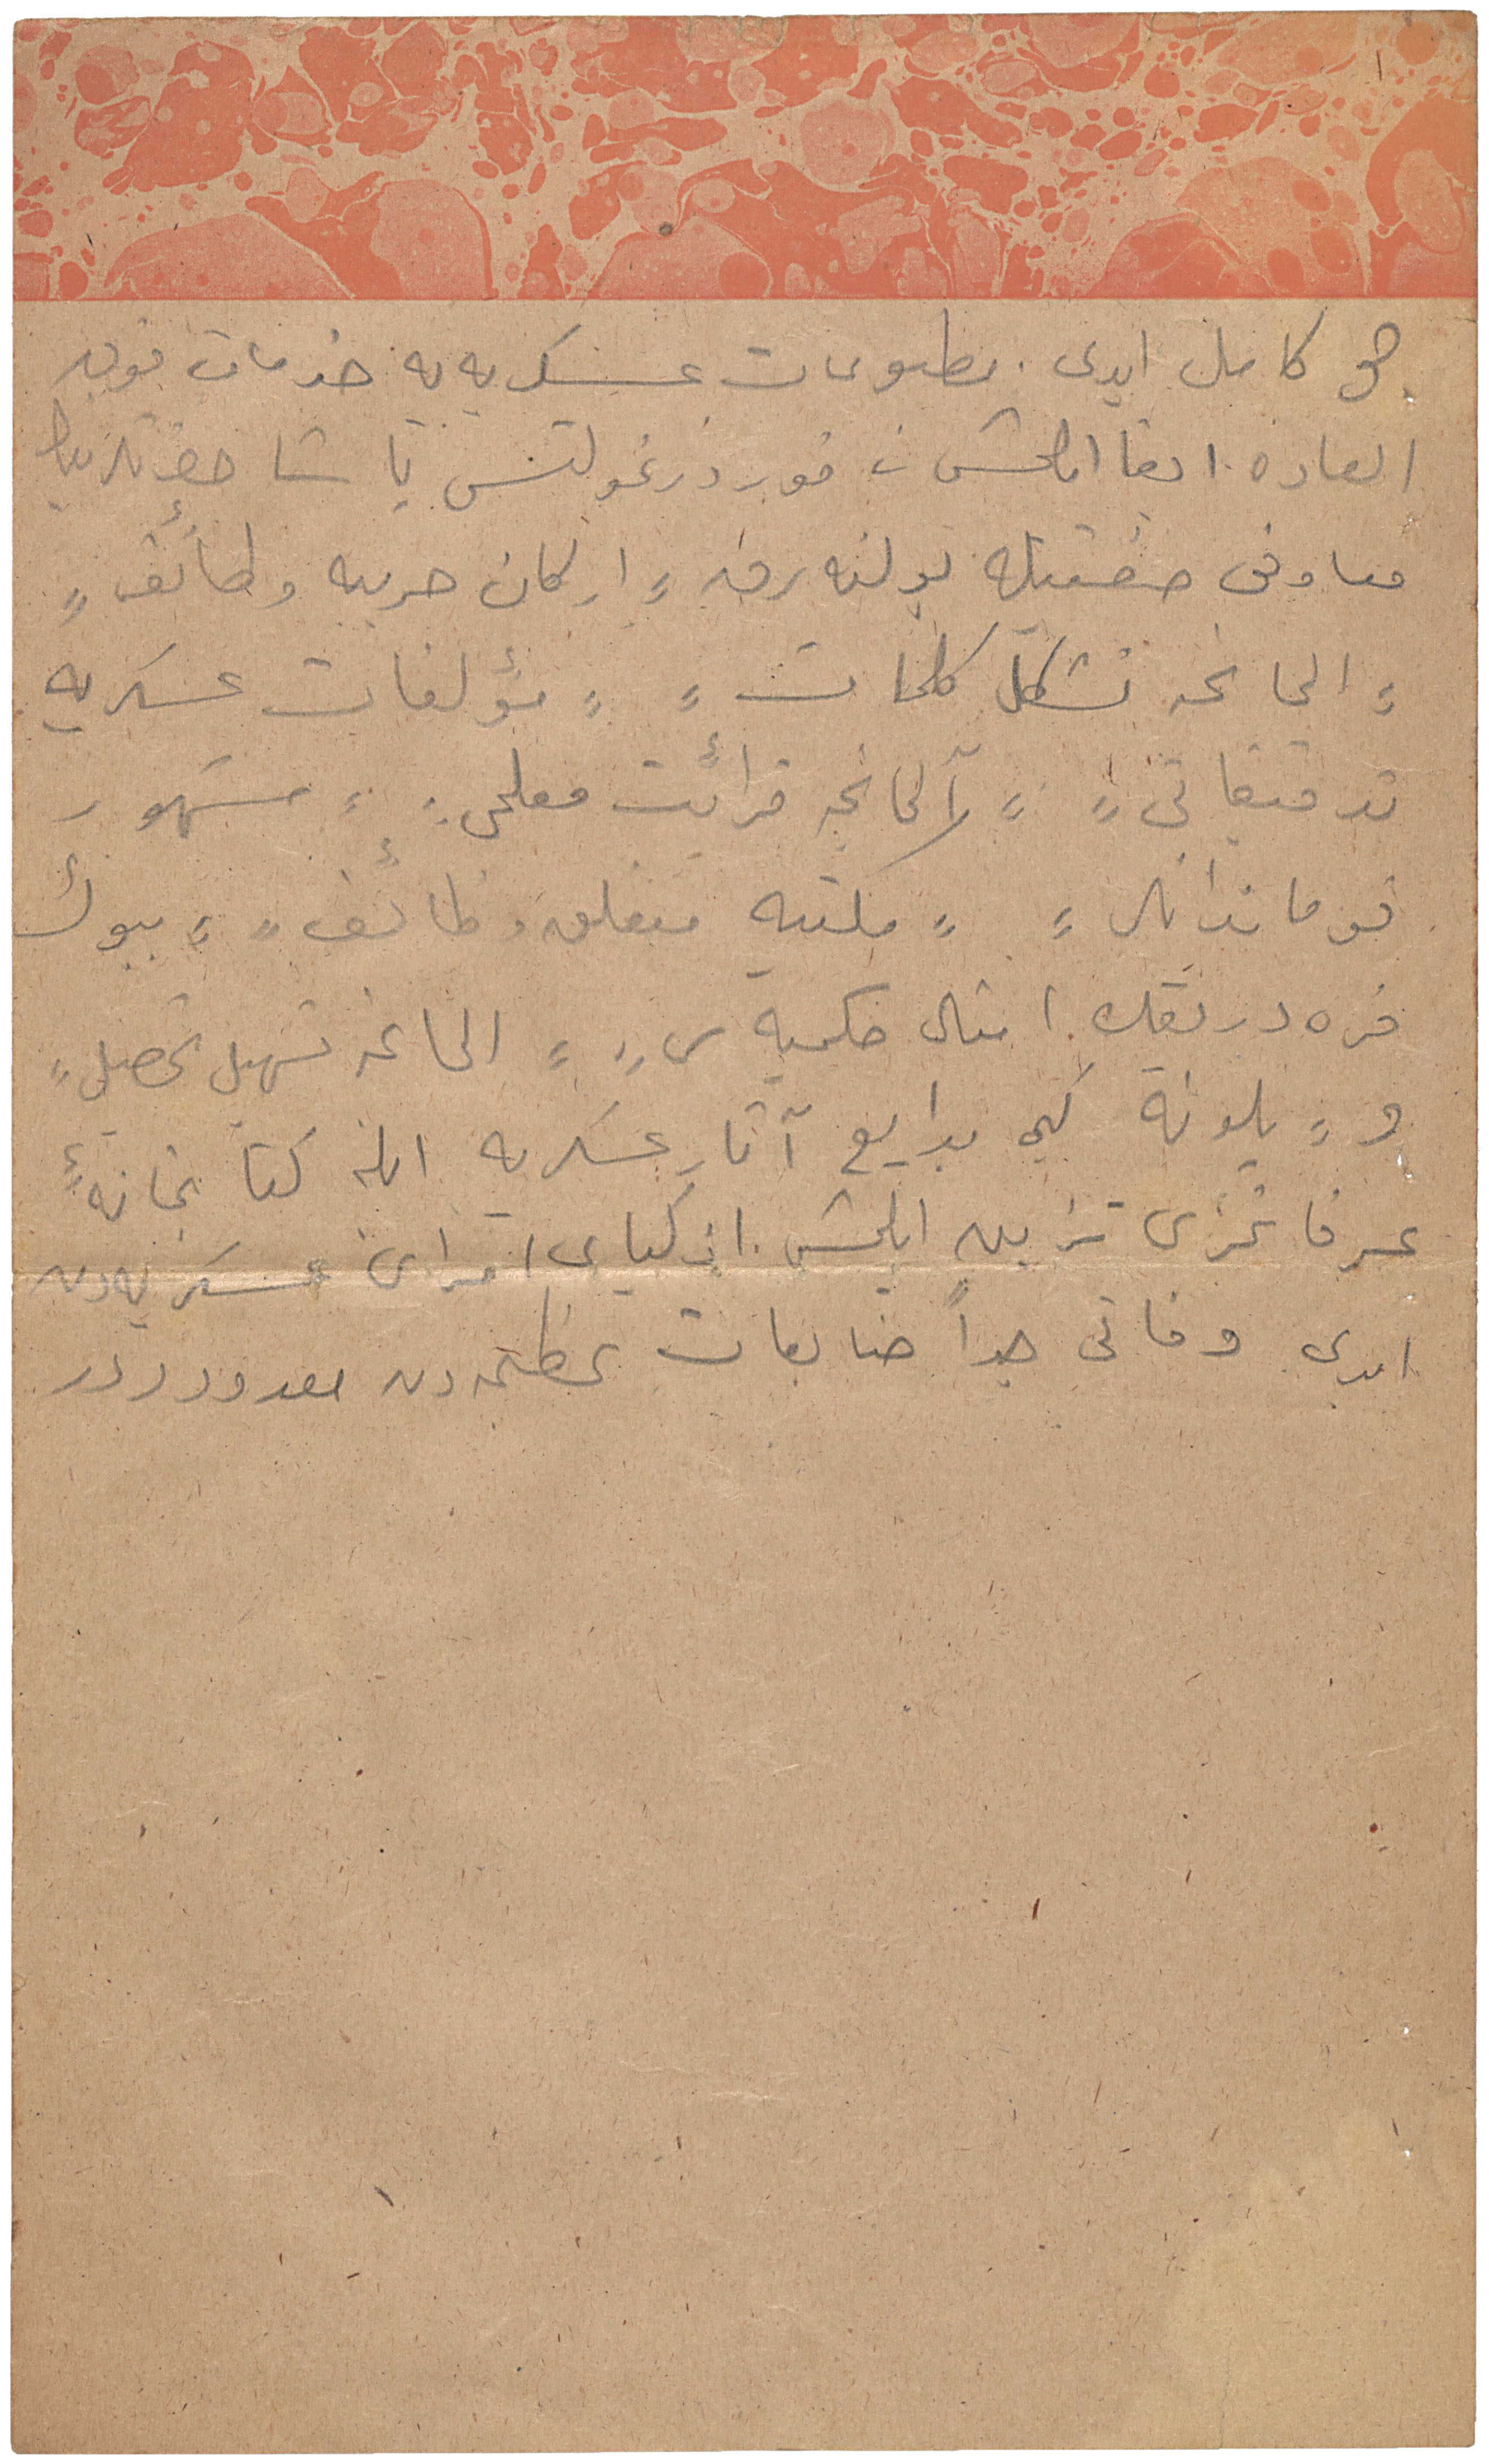 هو کامل ایدی. مطبوعات عسکریه یه خدمات فوق
العاده ایفا ایلمشدر فون در غولتس پاشا حضرتلرینك
معاونی صفتیله بولنه رق «ارکان حربیه وظائف»
«المانجه تشکل کلمات» «مؤلفات عسکریه
تدقیقاتی» «آلمانجه قرائت معلمی» «مشهور
قوماندانلر» «مکتبه متعلق وظائف» «بیوك
فره دریقك امثال حکمیه سی» «المانجه تسهیل تحصیل»
و «پلونه» کبی بدایع آثار عسکریه ایله کتابخانهٔ
عرفانمزی تزیین ایلمش اذکیای امرای عسکریه دن
ایدی وفاتی جداً ضایعات عظیمه دن معدوددر